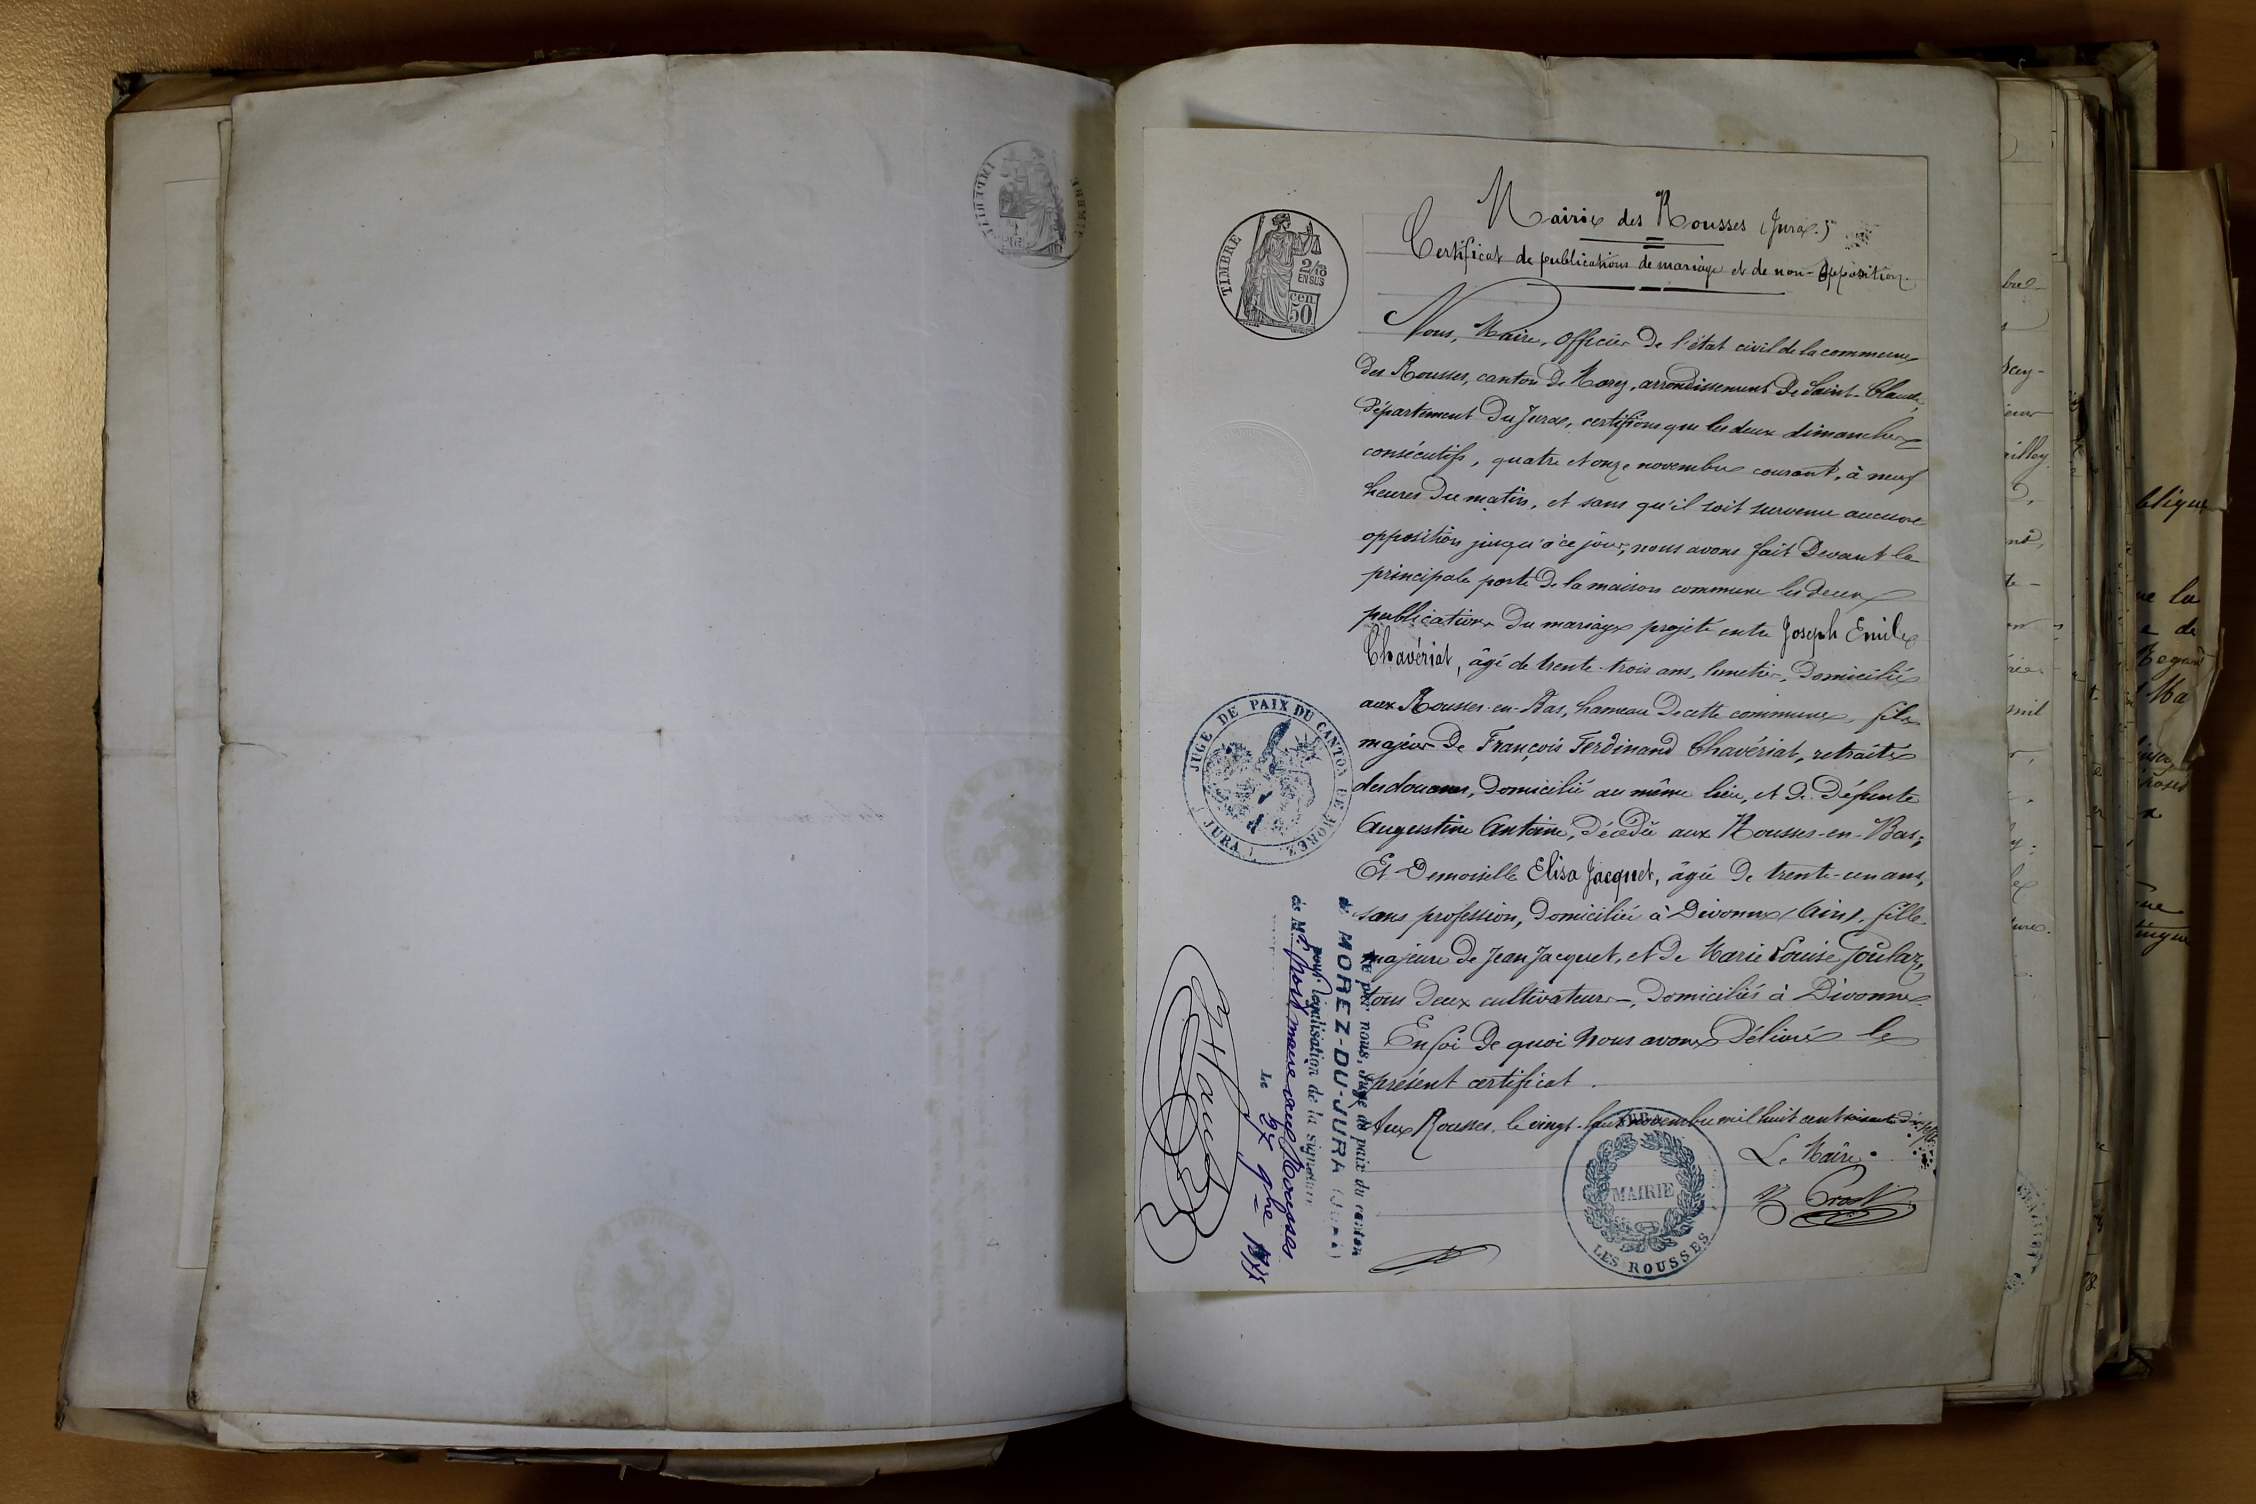 Mairie des Rousses (Jura.)
Certificat de publications de mariage et de non-opposition.
TIMBRE
2/10
EN SUS
cen.
50
Nous, Maire, officier de l'état civil de la commune
des Rousses, canton de Morez, arrondissement de Saint-Claude,
département du Jura, certifions que les deux dimanches
consécutifs, quatre et onze novembre courant, à neuf
heures du matin, et sans qu'il soit survenu aucune
opposition jusqu'à ce jour, nous avons fait devant la
principale porte de la maison commune les deux
publications du mariage projeté entre Joseph Emile
Chavériat, âgé de trente-trois ans, lunetier, domicilié
aux Rousses-en-Bas, hameau de cette commune, fils
majeur de François Ferdinand Chavériat, retraité
des douanes, domicilié au même lieu, et de défunte
Augustine Antoine, décédée aux Rousses-en-Bas;
Et Demoiselle Elisa Jacquet, âgée de trente-un ans,
sans profession, domiciliée à Divonne (Ain), fille
majeure de Jean Jacquet, et de Marie Louise Goulaz,
tous deux cultivateurs, domiciliés à Divonne.
En foi de quoi nous avons délivré le
présent certificat.
Aux Rousses, le vingt-huit novembre mil huit cent soixante dix-sept.
Le Maire.
Prost
MAIRIE
LES ROUSSES
JURA
JUGE DE PAIX DU CANTON DE MOREZ
( JURA )
Vu par nous, Juge de paix du canton
de MOREZ-DU-JURA (Jura)
pour légalisation de la signature
de Mr. Prost maire aux Rousses
Le 9bre 1877